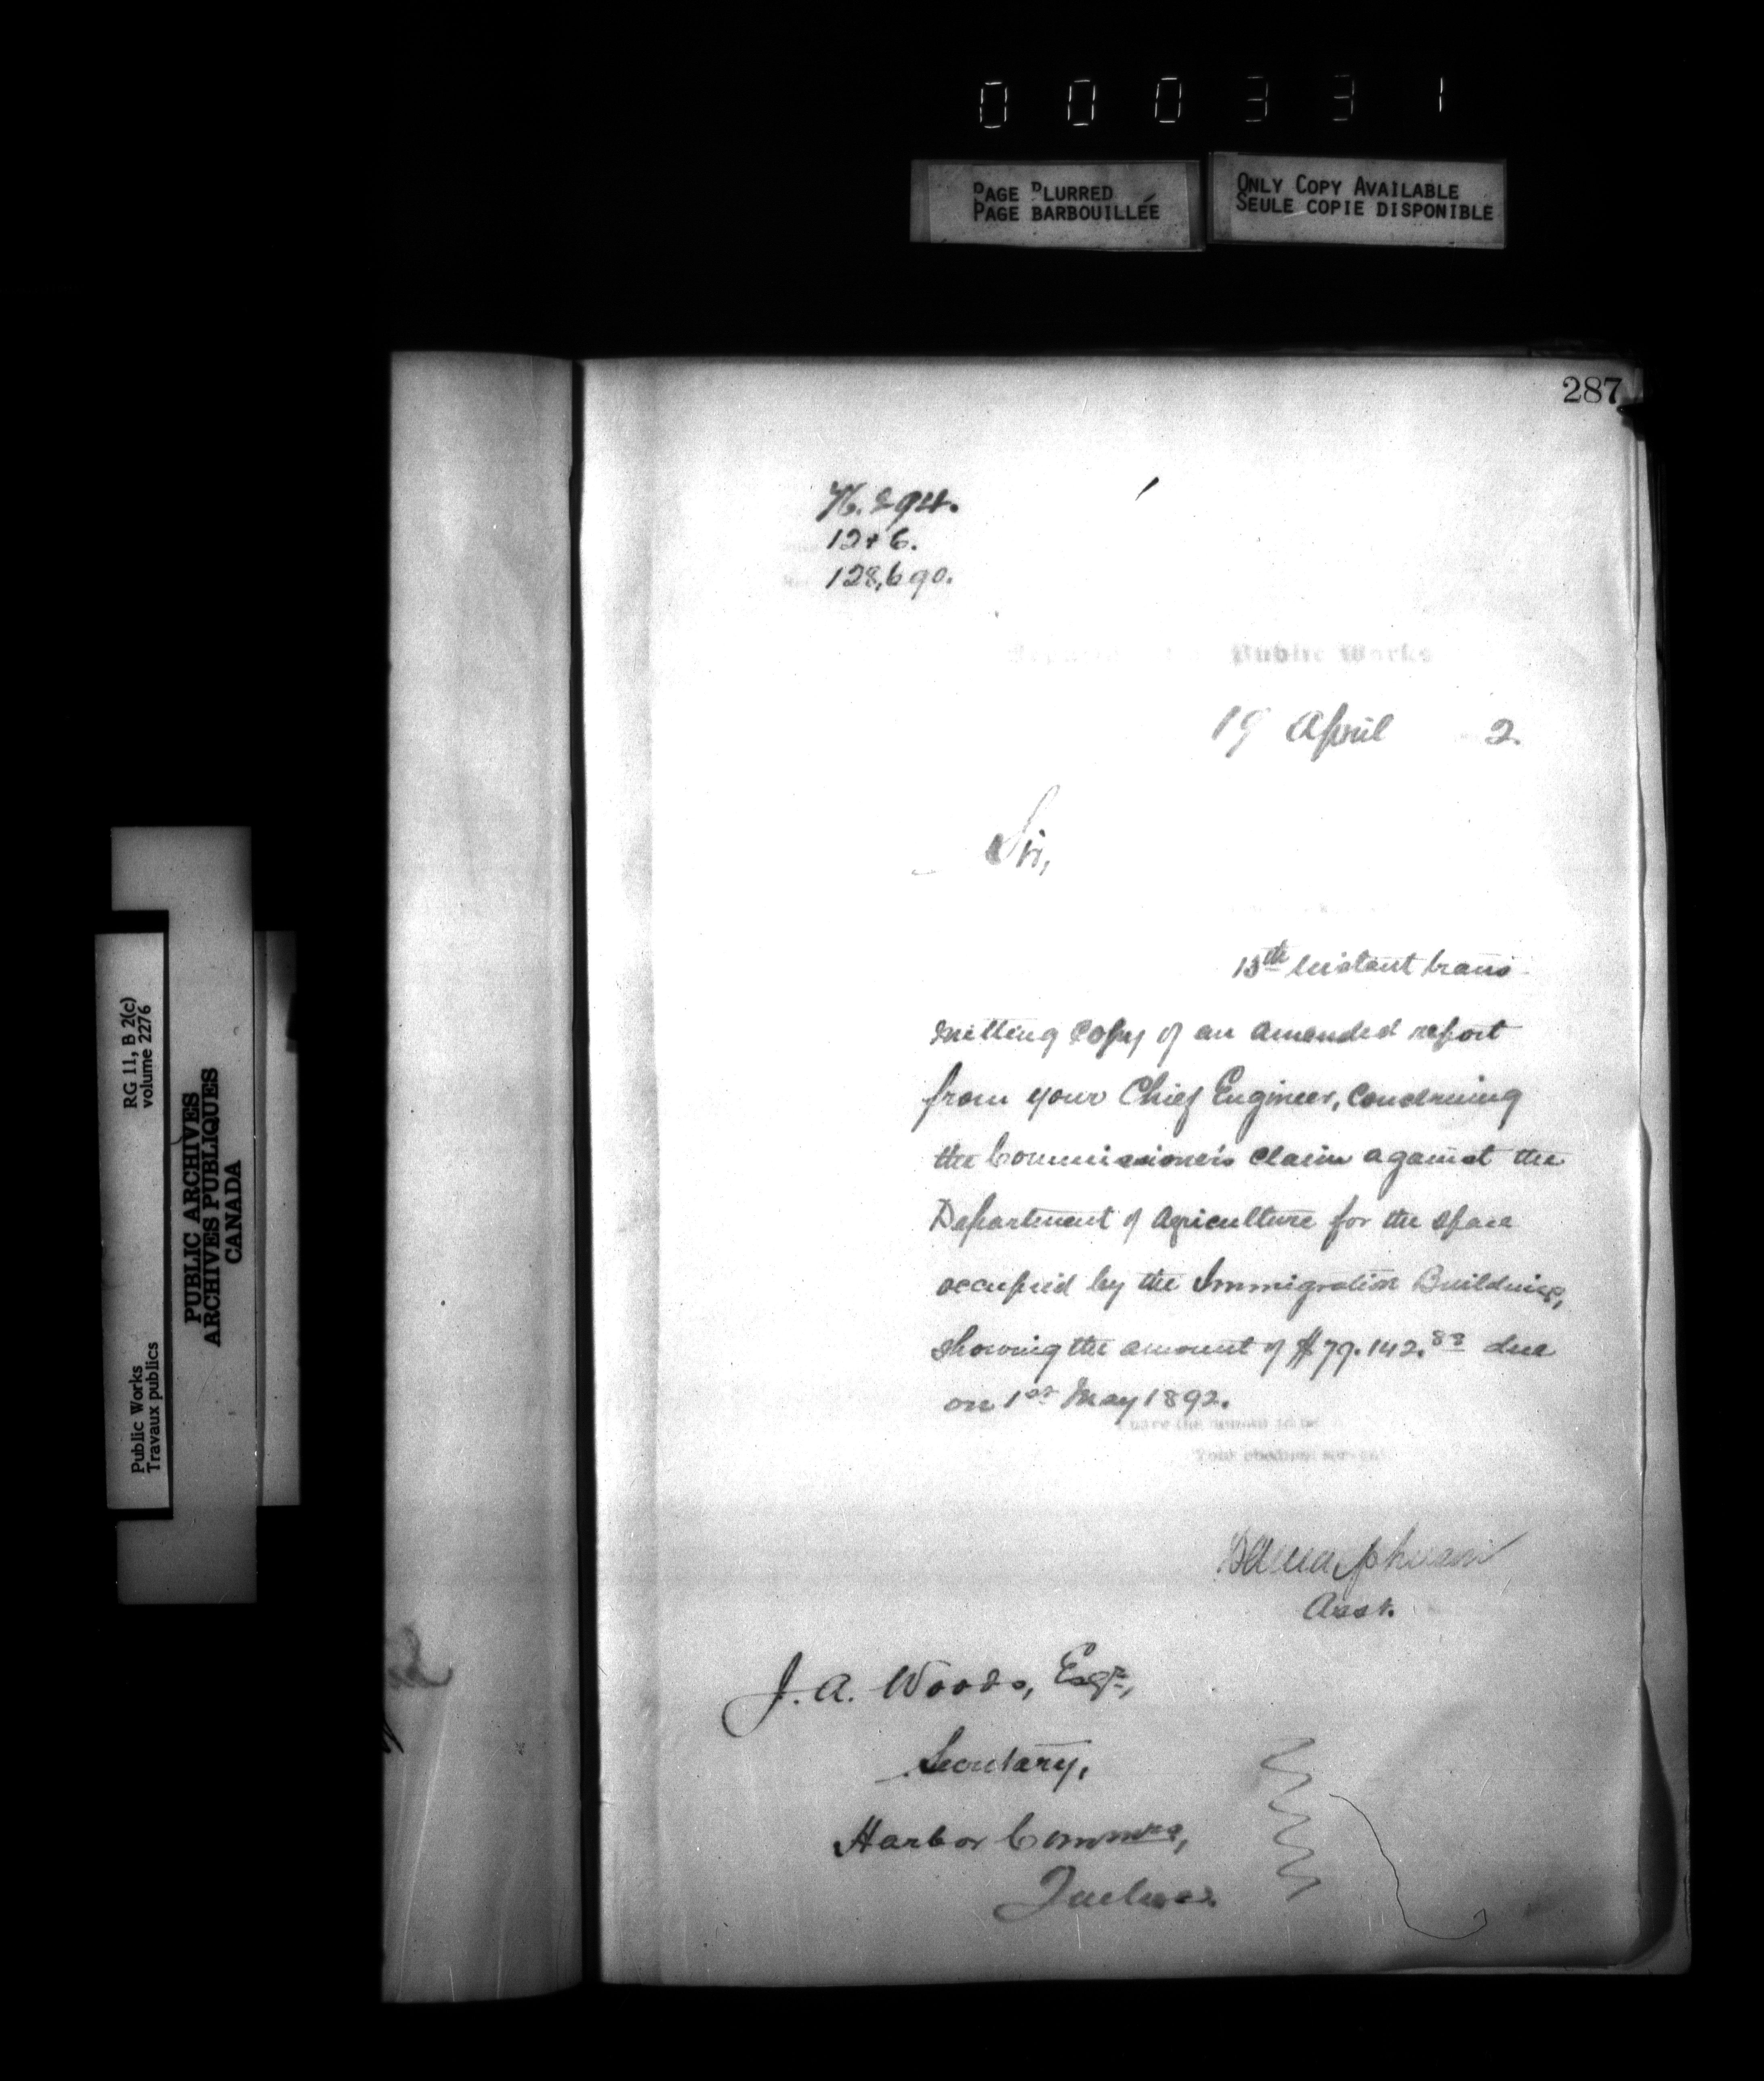 0 0 0 3 3 1
PAGE BLURRED
PAGE BARBOUILLÉE
ONLY COPY AVAILABLE
SEULE COPIE DISPONIBLE
287
12+6.
128,690.
Public Works
19 April 2.
Sir,
15th instant trans-
mitting copy of an amended report
from your Chief Engineer, concerning
the Commissioners claim against the
Department of Agriculture for the space
occupied by the Immigration Buildings,
showing the amount of $79.142.88 due
on 1st May 1892.
have the honour to be
Your obedient servant
Asst.
J. A. Woods, Esqr,
Secretary,
Harbor Commrs,
Quebec.
RG 11, B 2(c)
volume 2276
PUBLIC ARCHIVES
ARCHIVES PUBLIQUES
CANADA
Public Works
Travaux publics